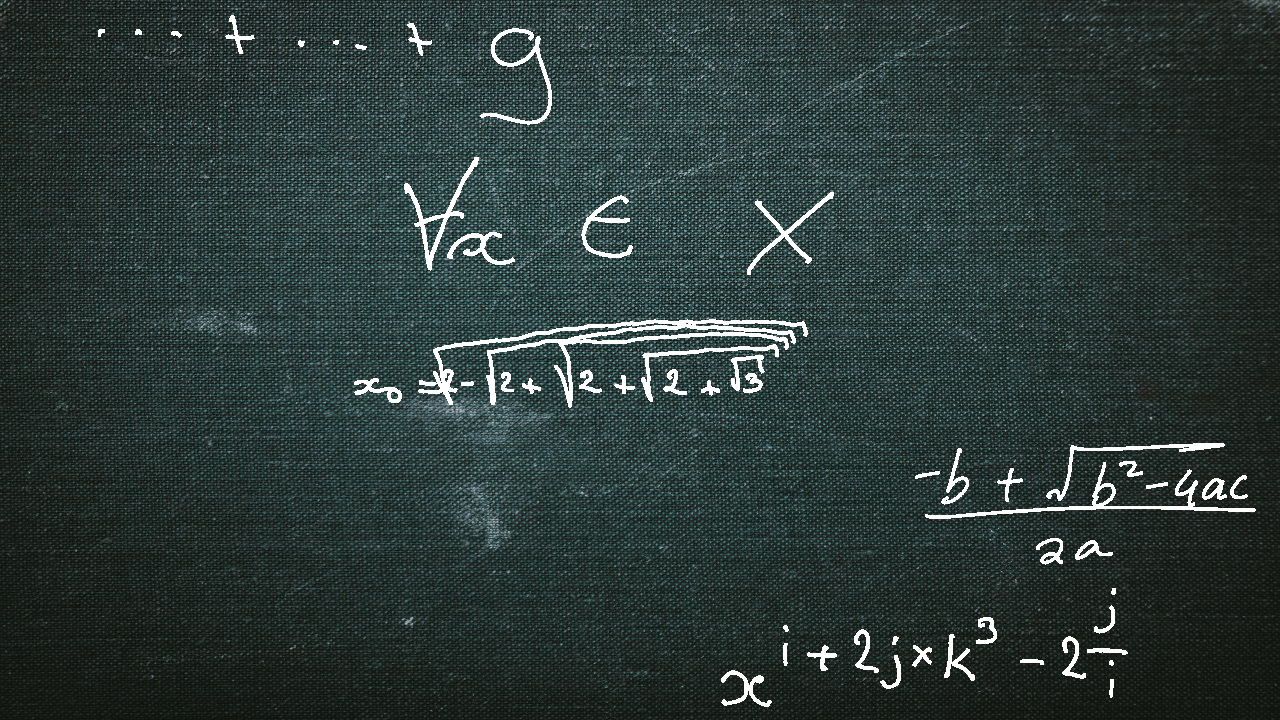 ... + ... + g
∀x ∈ X
x₀ = √(2 - √(2 + √(2 + √(2 + √3))))
(-b + √(b² - 4ac)) / 2a
x^(i + 2j × k³ - 2 j/i)